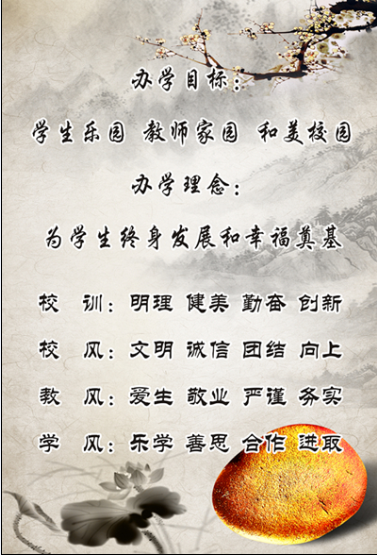 办学目标：
学生乐园 教师家园 和美校园
办学理念：
为学生终身发展和幸福奠基
校 训：明理 健美 勤奋 创新
校 风：文明 诚信 团结 向上
教 风：爱生 敬业 严谨 务实
学 风：乐学 善思 合作 进取